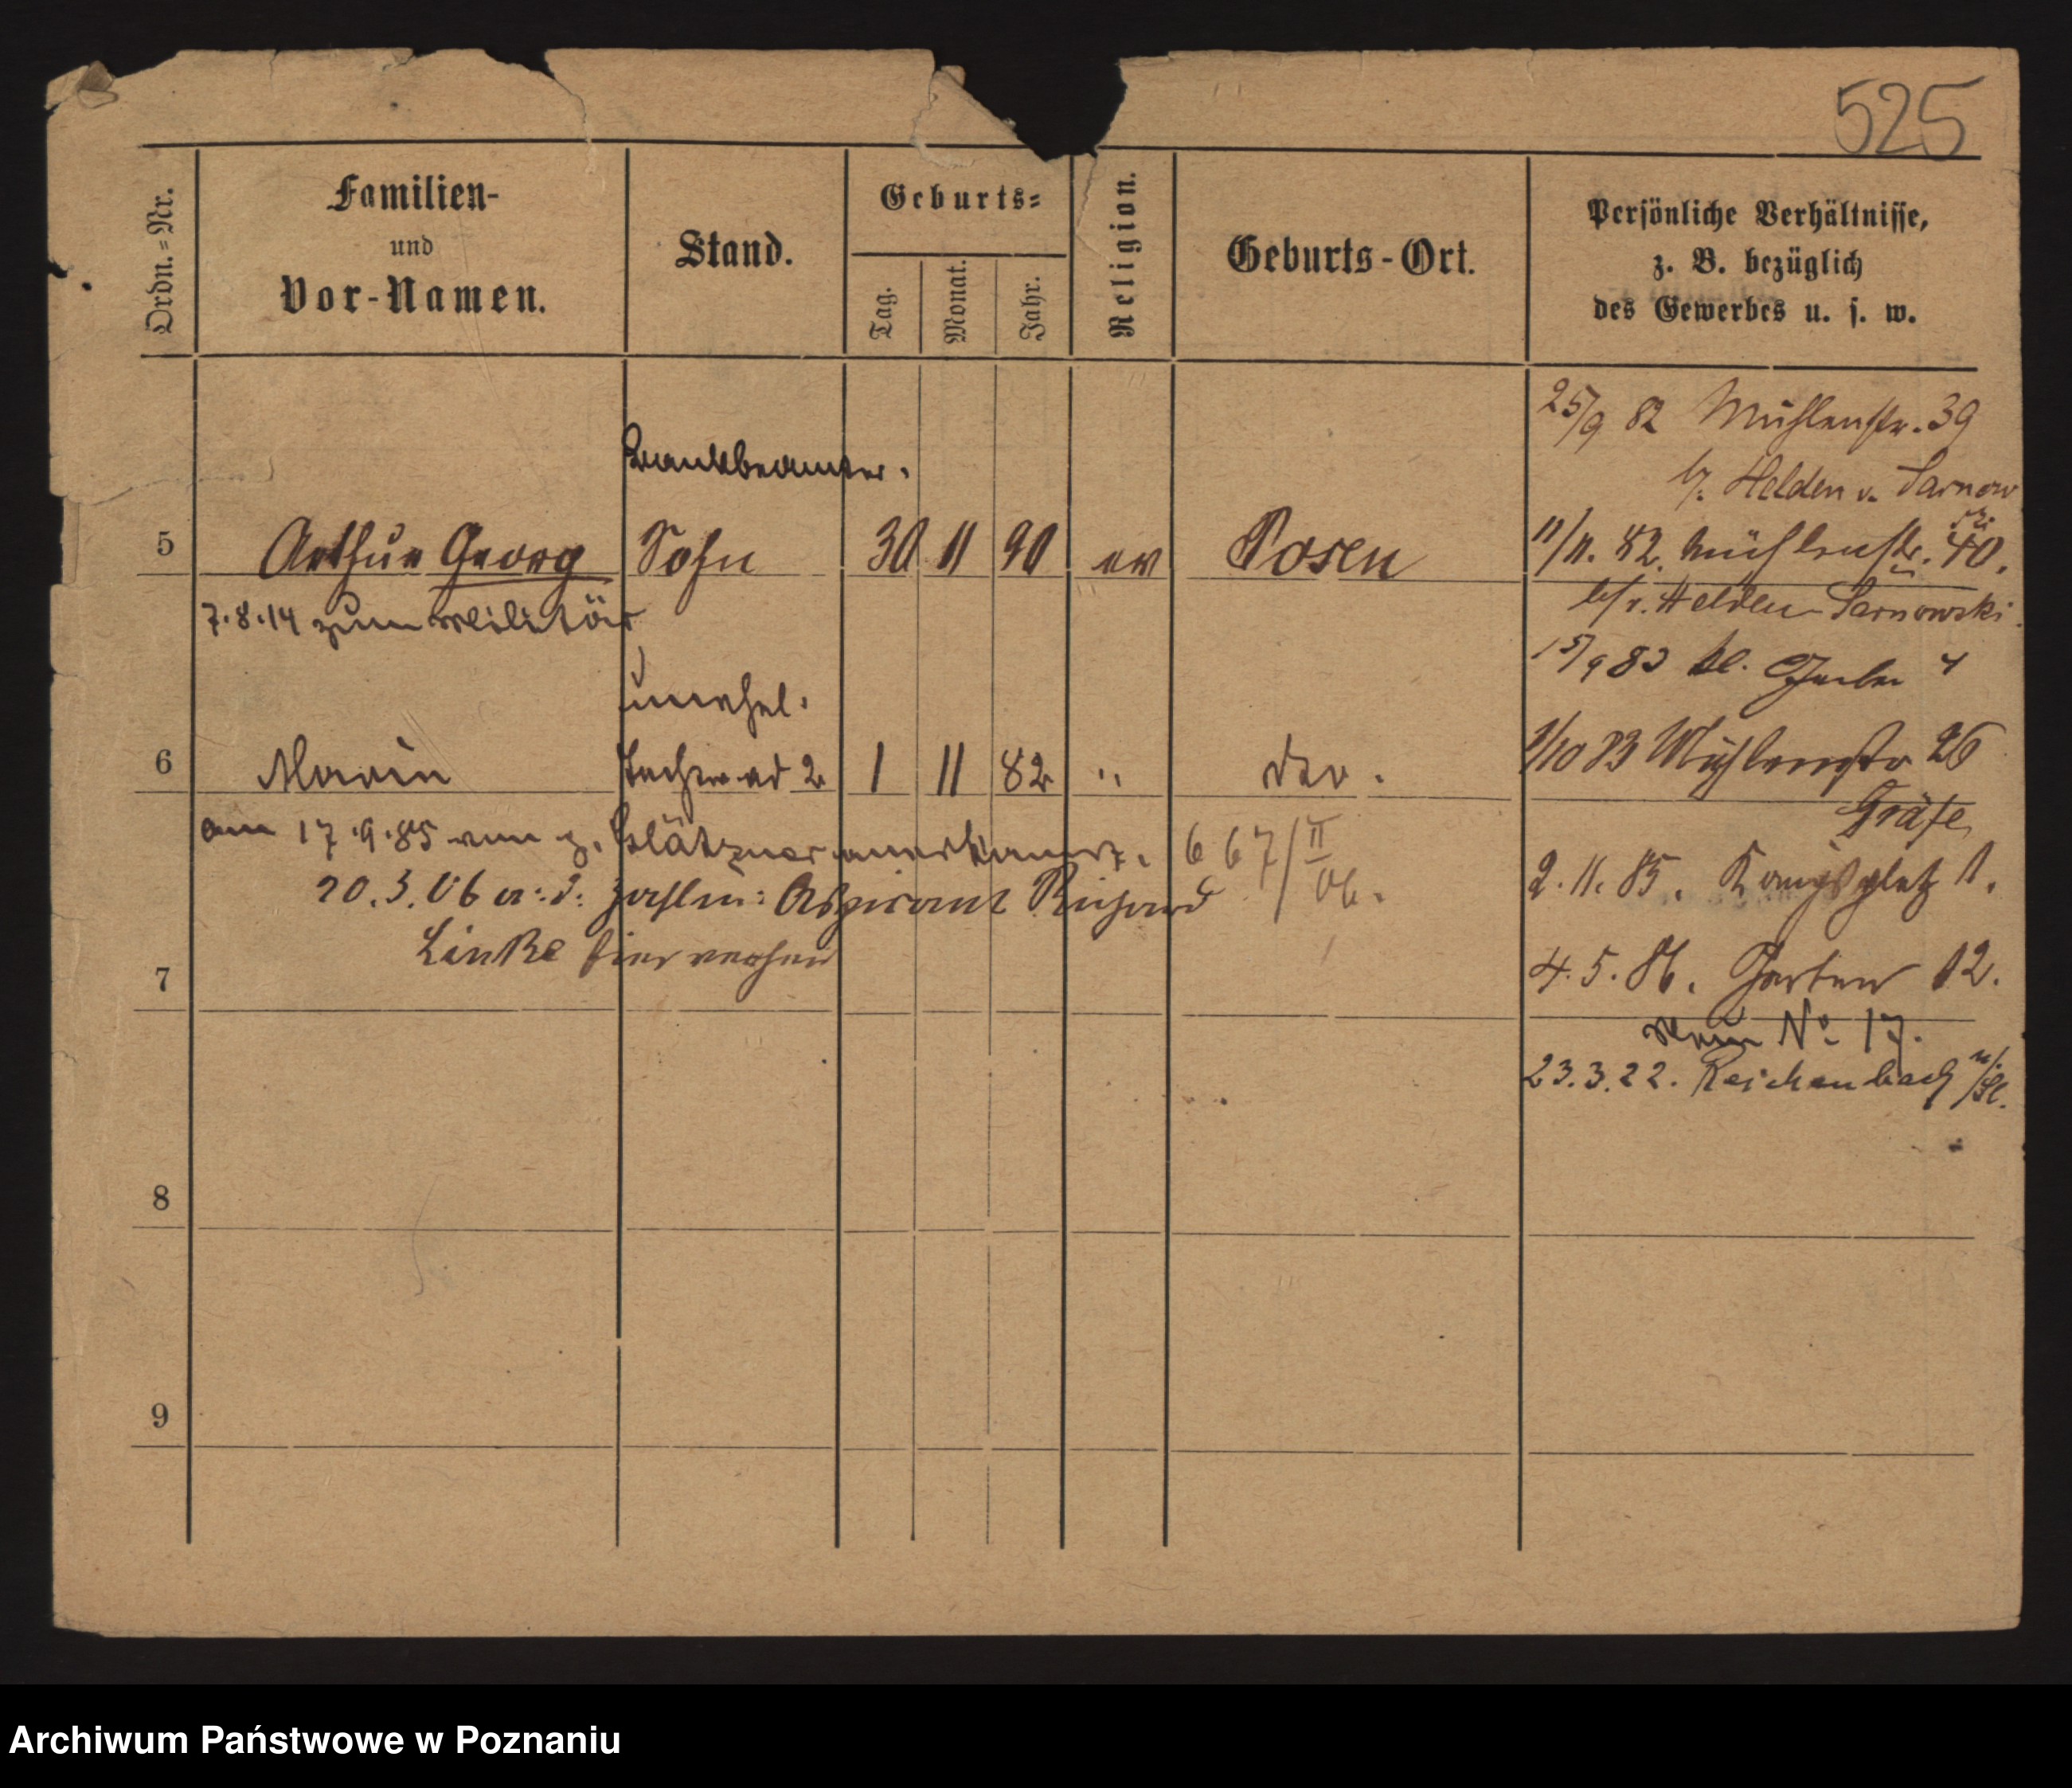 525
Ordn.=Nr.
Familien-
und
Vor-Namen.
Stand.
Geburts=
Tag.
Monat.
Jahr.
Religion.
Geburts-Ort.
Persönliche Verhältnisse,
z. B. bezüglich
des Gewerbes u. s. w.
Bankbeamter.
5 Arthur Georg Sohn 30 11 90 ev Posen
7.8.14 zum Militär
unehel.
6 Marie Tochter ad 2 1 11 82 " do.
am 17.9.85 von z. Glätzner anerkannt. 667/II 06.
20.3.06 a: d: Zahlm: Aspirant Richard
Linke hier
7
8
9
25/9 82 Mühlenstr. 39
b. Helden v. Sarnow
11/11. 82. Mühlenstr. 40.
b/v. Helden-Sarnowski.
15/9 83 kl. Gerber 4
1/10 83 Mühlenstr 26
Gräfe
2.11.85. Königsplatz 1.
4.5.86. Garten 12.
neue No 17.
23.3.22. Reichenbach /Sl.
Archiwum Państwowe w Poznaniu